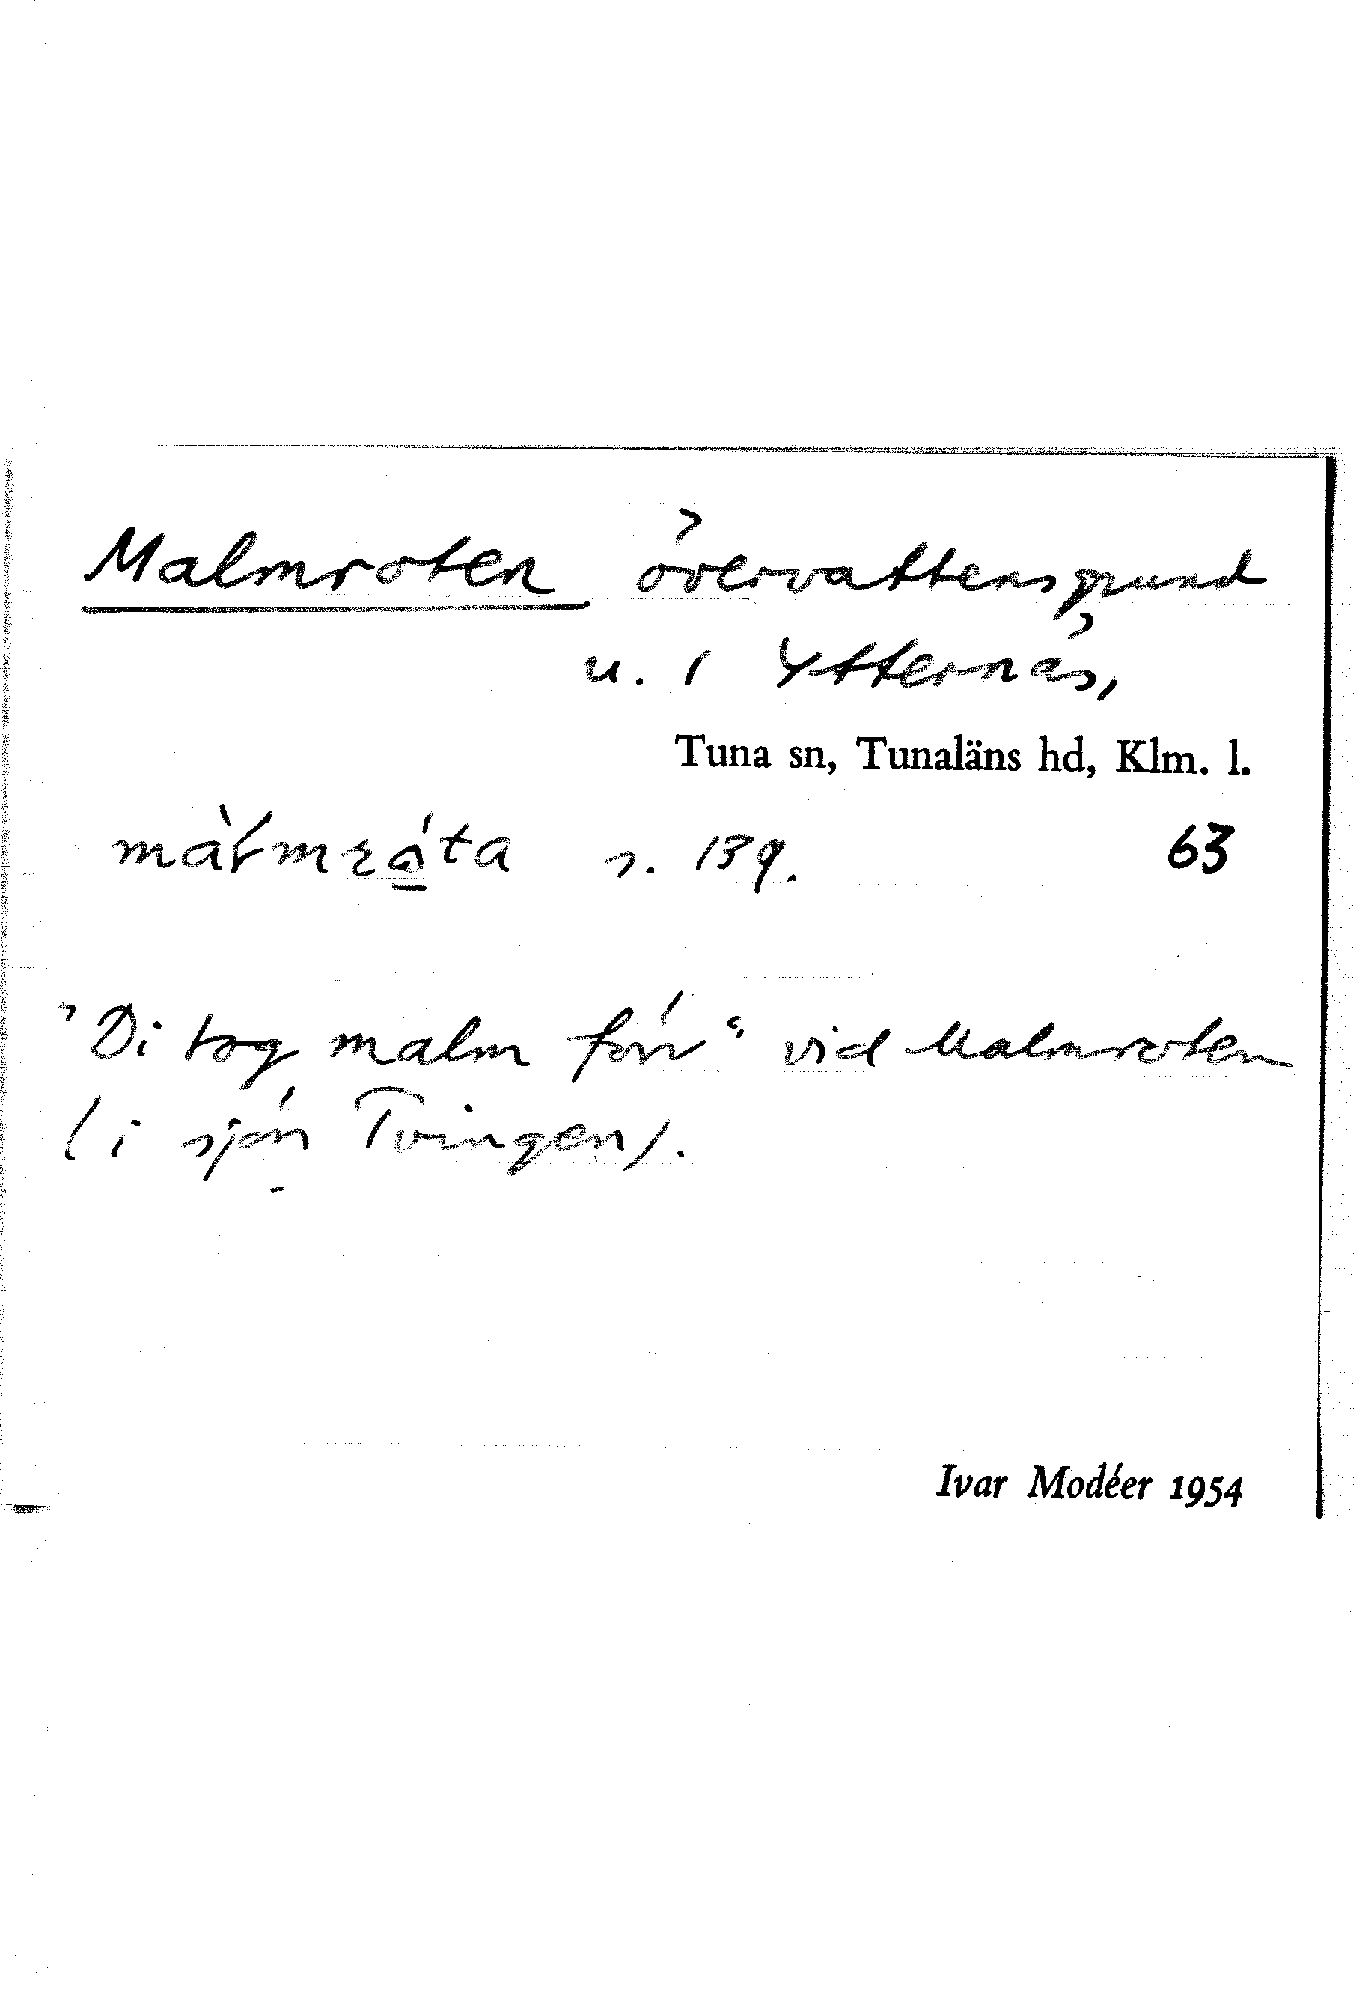 Malmroten övervattensgrund
u. 1 Ytternäs,
Tuna sn, Tunaläns hd, Klm. l.
s. 139. 63
"Di tog malm förr" vid Malmroten
(i sjön Tvingen).
Ivar Modéer 1954